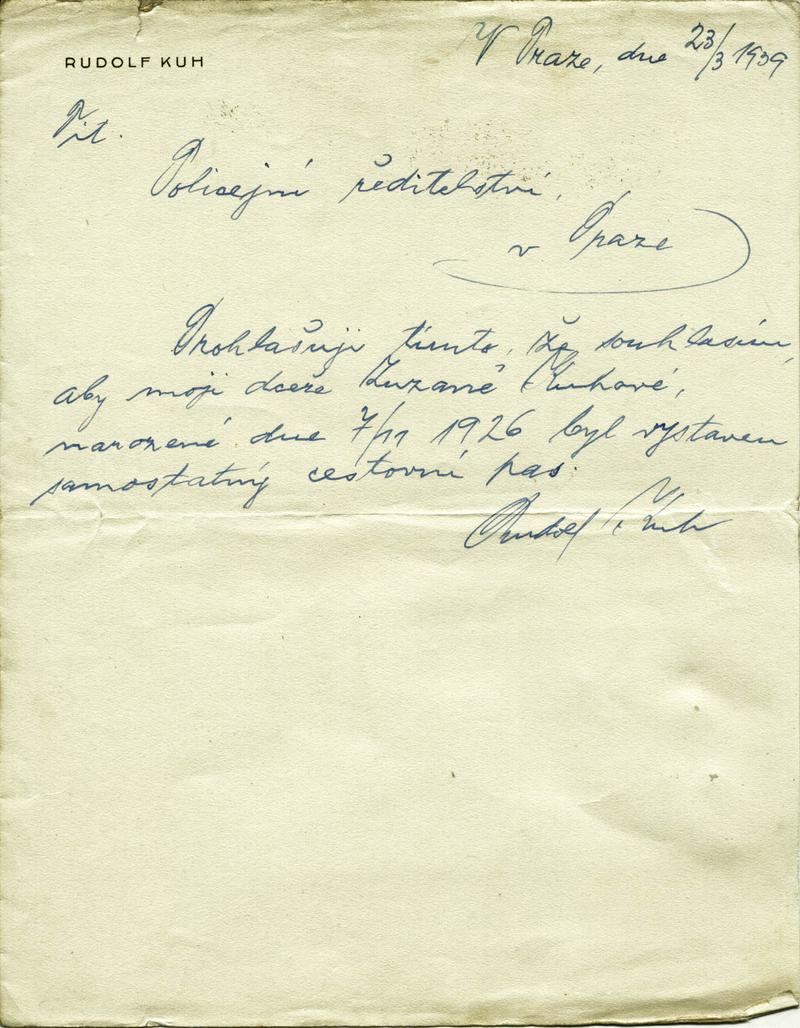 RUDOLF KUH
V Praze, dne 23/3 1939
Tit.
Policejní ředitelství,
v Praze
Prohlašuji tímto, že souhlasím,
aby moji dceře Zuzaně Kuhové,
narozené dne 7/11 1926 byl vystaven
samostatný cestovní pas.
Rudolf Kuh